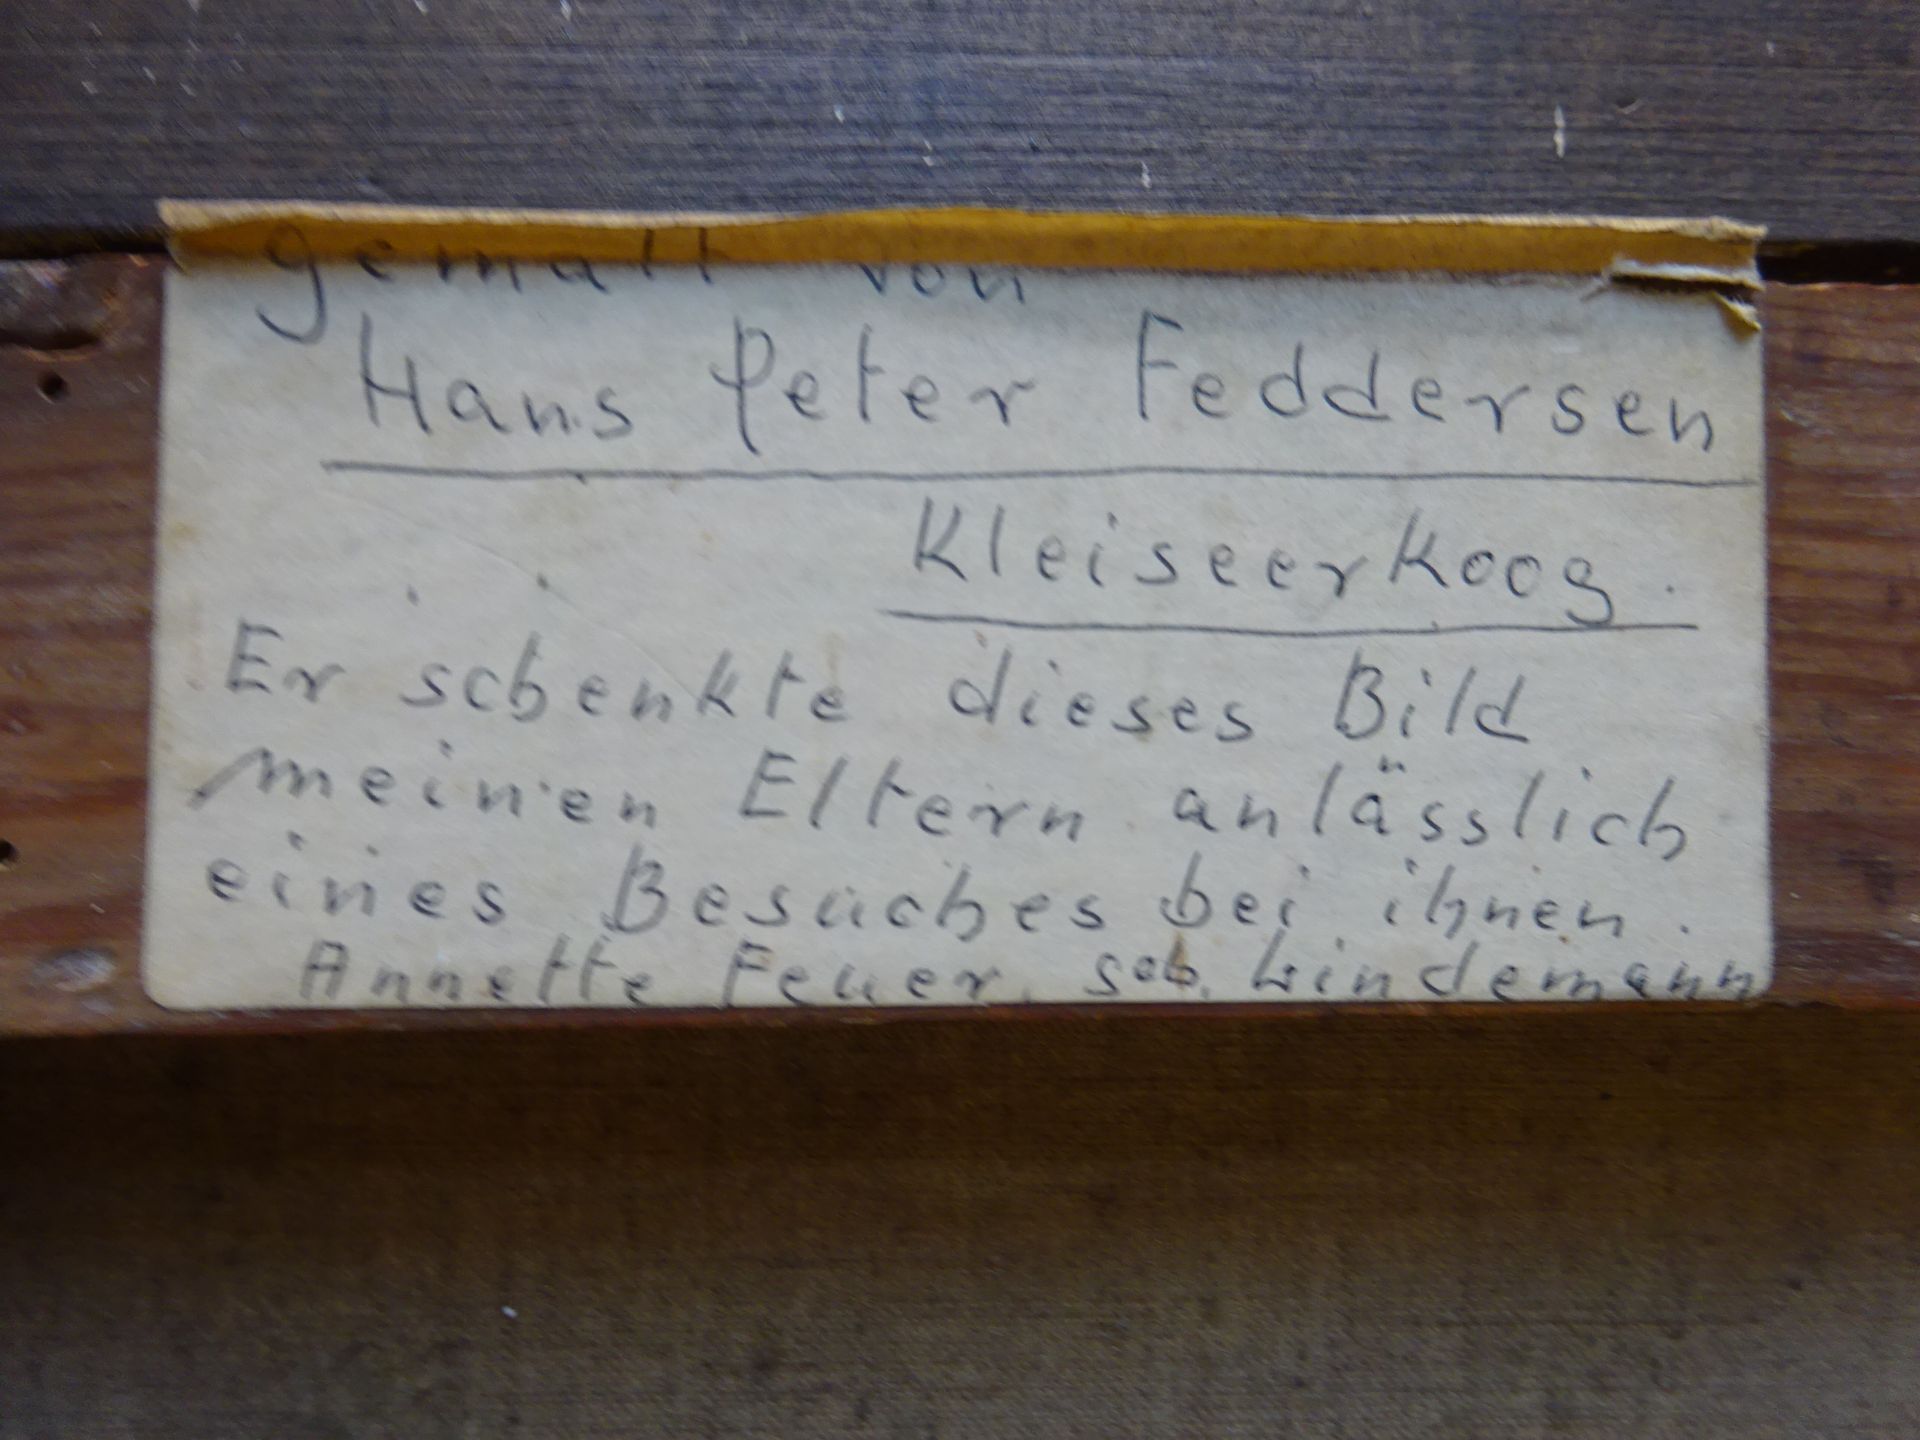 gemalt von
Hans Peter Feddersen
Kleiseerkoog.
Er schenkte dieses Bild
meinen Eltern anlässlich
eines Besuches bei ihnen.
Annette Feuer, geb. Lindemann